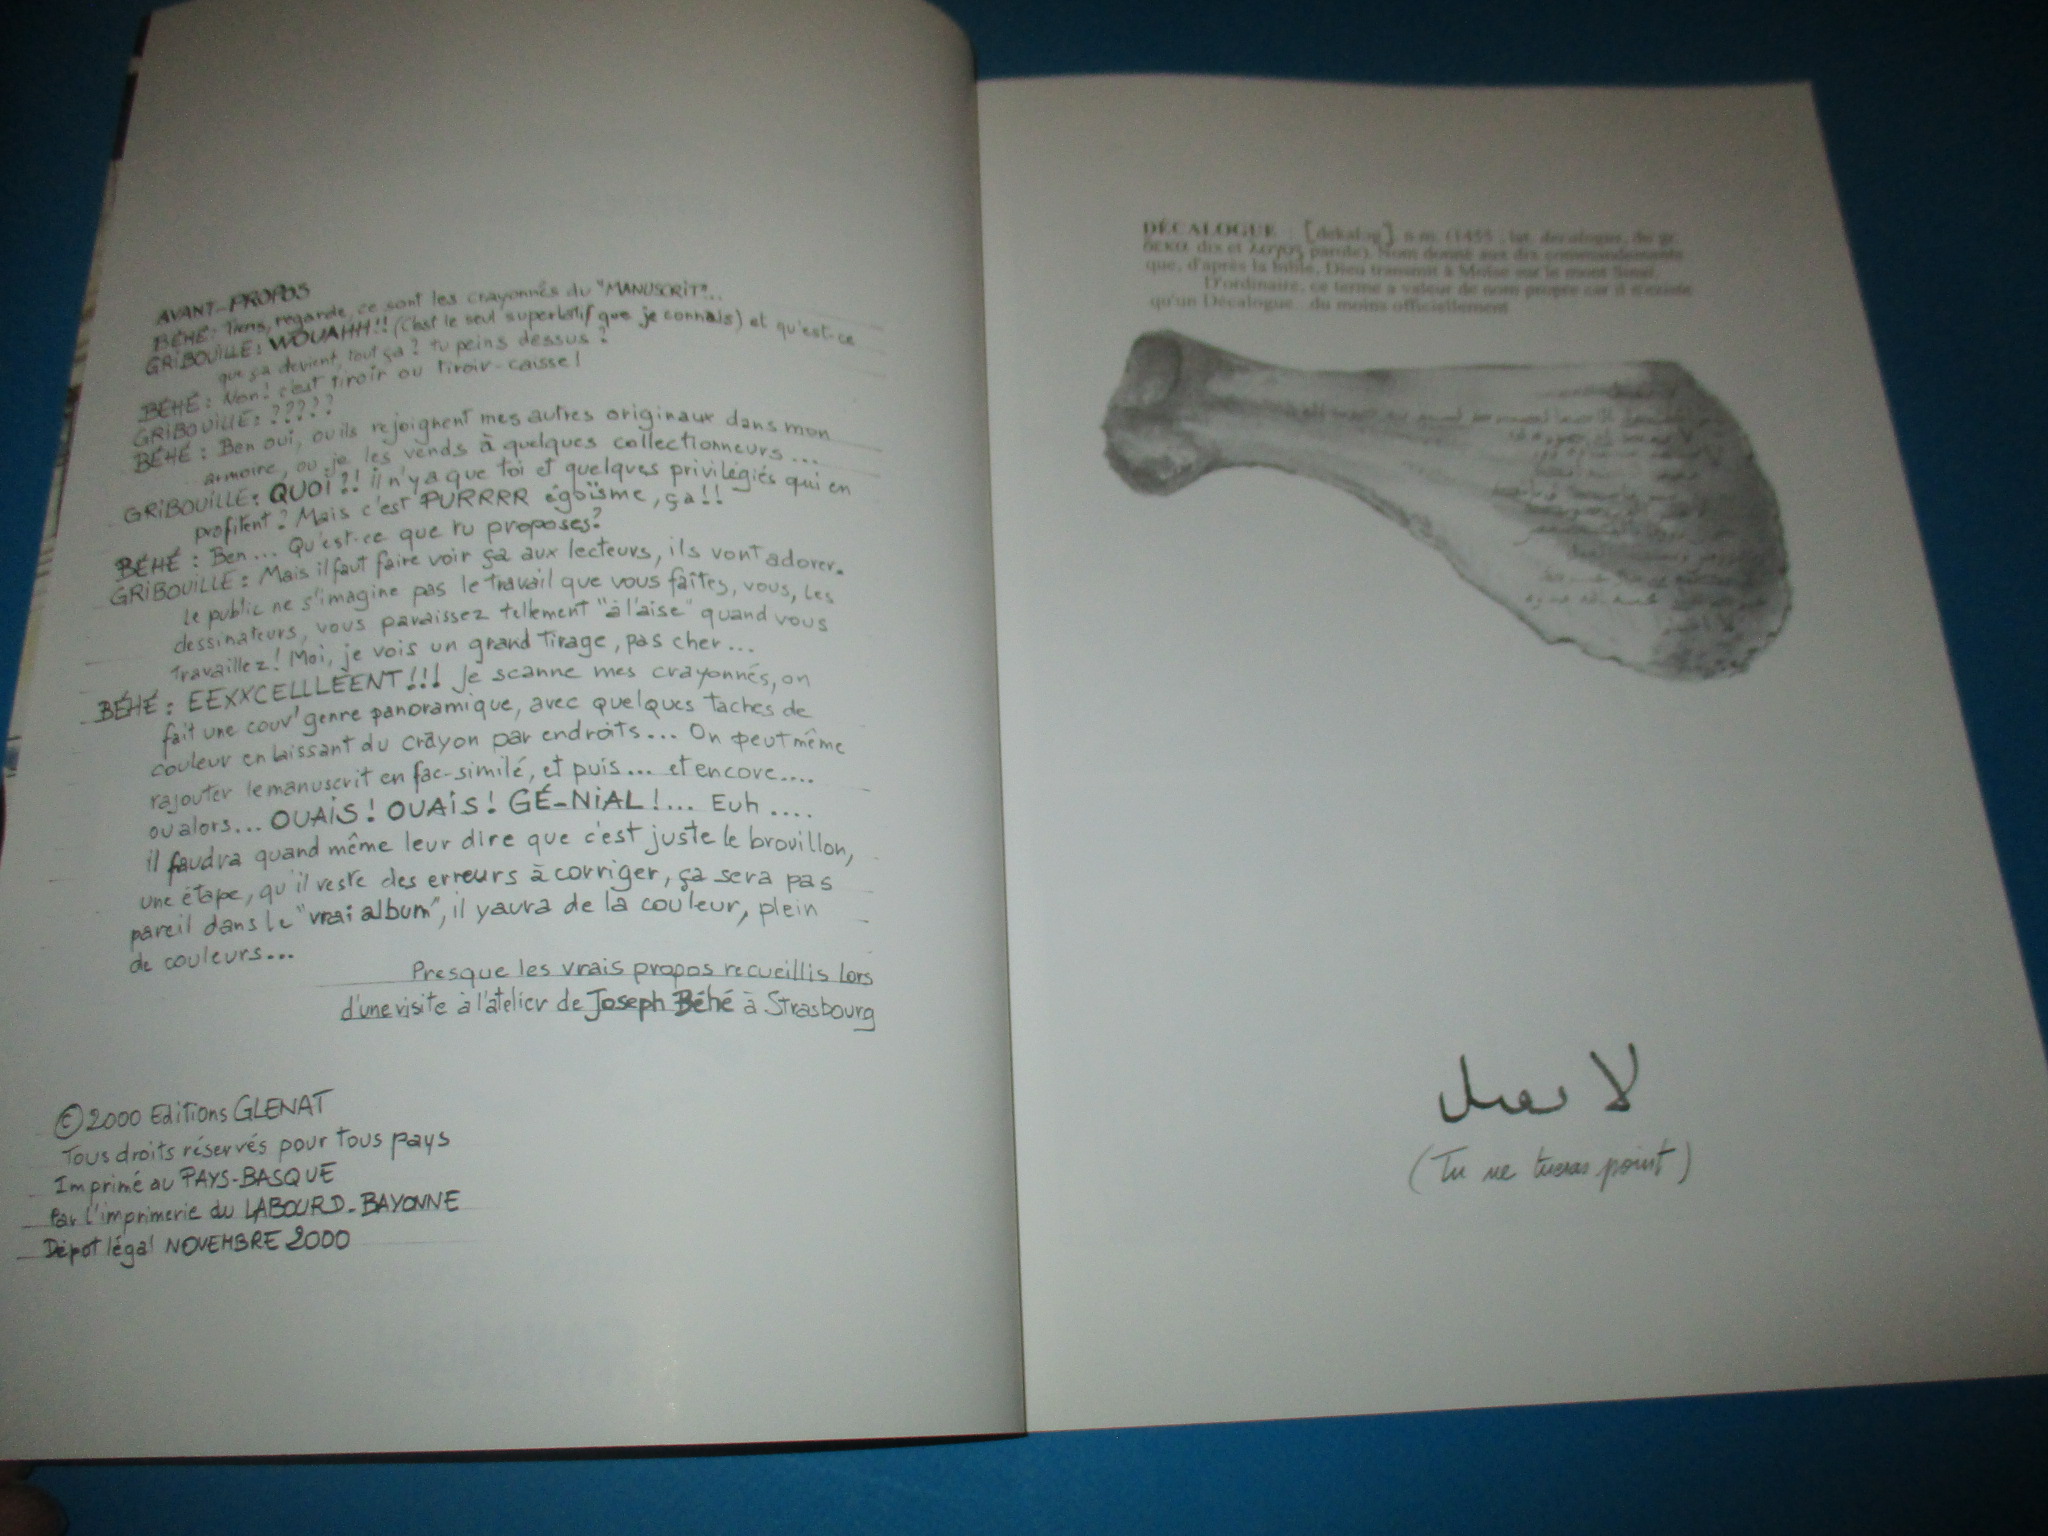 AVANT-PROPOS
BÉHÉ: Tiens, regarde, ce sont les crayonnés du "MANUSCRIT"...
GRIBOUILLE: WOUAHH!! (c'est le seul superlatif que je connais) et qu'est-ce
que ça devient, tout ça? tu peins dessus?
BÉHÉ: Non! c'est tiroir ou tiroir-caisse!
GRIBOUILLE: ?????
BÉHÉ: Ben oui, ou ils rejoignent mes autres originaux dans mon
armoire, ou je les vends à quelques collectionneurs...
GRIBOUILLE: QUOI?! il n'y a que toi et quelques privilégiés qui en
profitent? Mais c'est PURRRR égoïsme, ça!!
BÉHÉ: Ben... Qu'est-ce que tu proposes?
GRIBOUILLE: Mais il faut faire voir ça aux lecteurs, ils vont adorer.
le public ne s'imagine pas le travail que vous faîtes, vous, les
dessinateurs, vous paraissez tellement "à l'aise" quand vous
travaillez! Moi, je vois un grand tirage, pas cher...
BÉHÉ: EEXXCELLLEENT!!! je scanne mes crayonnés, on
fait une couv' genre panoramique, avec quelques taches de
couleur en laissant du crayon par endroits... On peut même
rajouter le manuscrit en fac-similé, et puis... et encore....
ou alors... OUAIS! OUAIS! GÉ-NiAL!... Euh....
il faudra quand même leur dire que c'est juste le brouillon,
une étape, qu'il reste des erreurs à corriger, ça sera pas
pareil dans le "vrai album", il y aura de la couleur, plein
de couleurs...
Presque les vrais propos recueillis lors
d'une visite à l'atelier de Joseph Béhé à Strasbourg
© 2000 Editions GLENAT
Tous droits réservés pour tous pays
Imprimé au PAYS-BASQUE
Par l'imprimerie du LABOURD-BAYONNE
Dépot légal NOVEMBRE 2000
DÉCALOGUE : [dekalog] n.m. (1455 ; lat. decalogus, du gr.
δεκα dix et λογος parole). Nom donné aux dix commandements
que, d'après la bible, Dieu transmit à Moïse sur le mont Sinaï.
D'ordinaire, ce terme a valeur de nom propre car il n'existe
qu'un Décalogue...du moins officiellement
لا
(Tu ne tueras point)